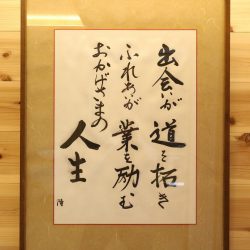 出会いが
道を拓き
ふれあいが
業を励む
おかげさまの
人生